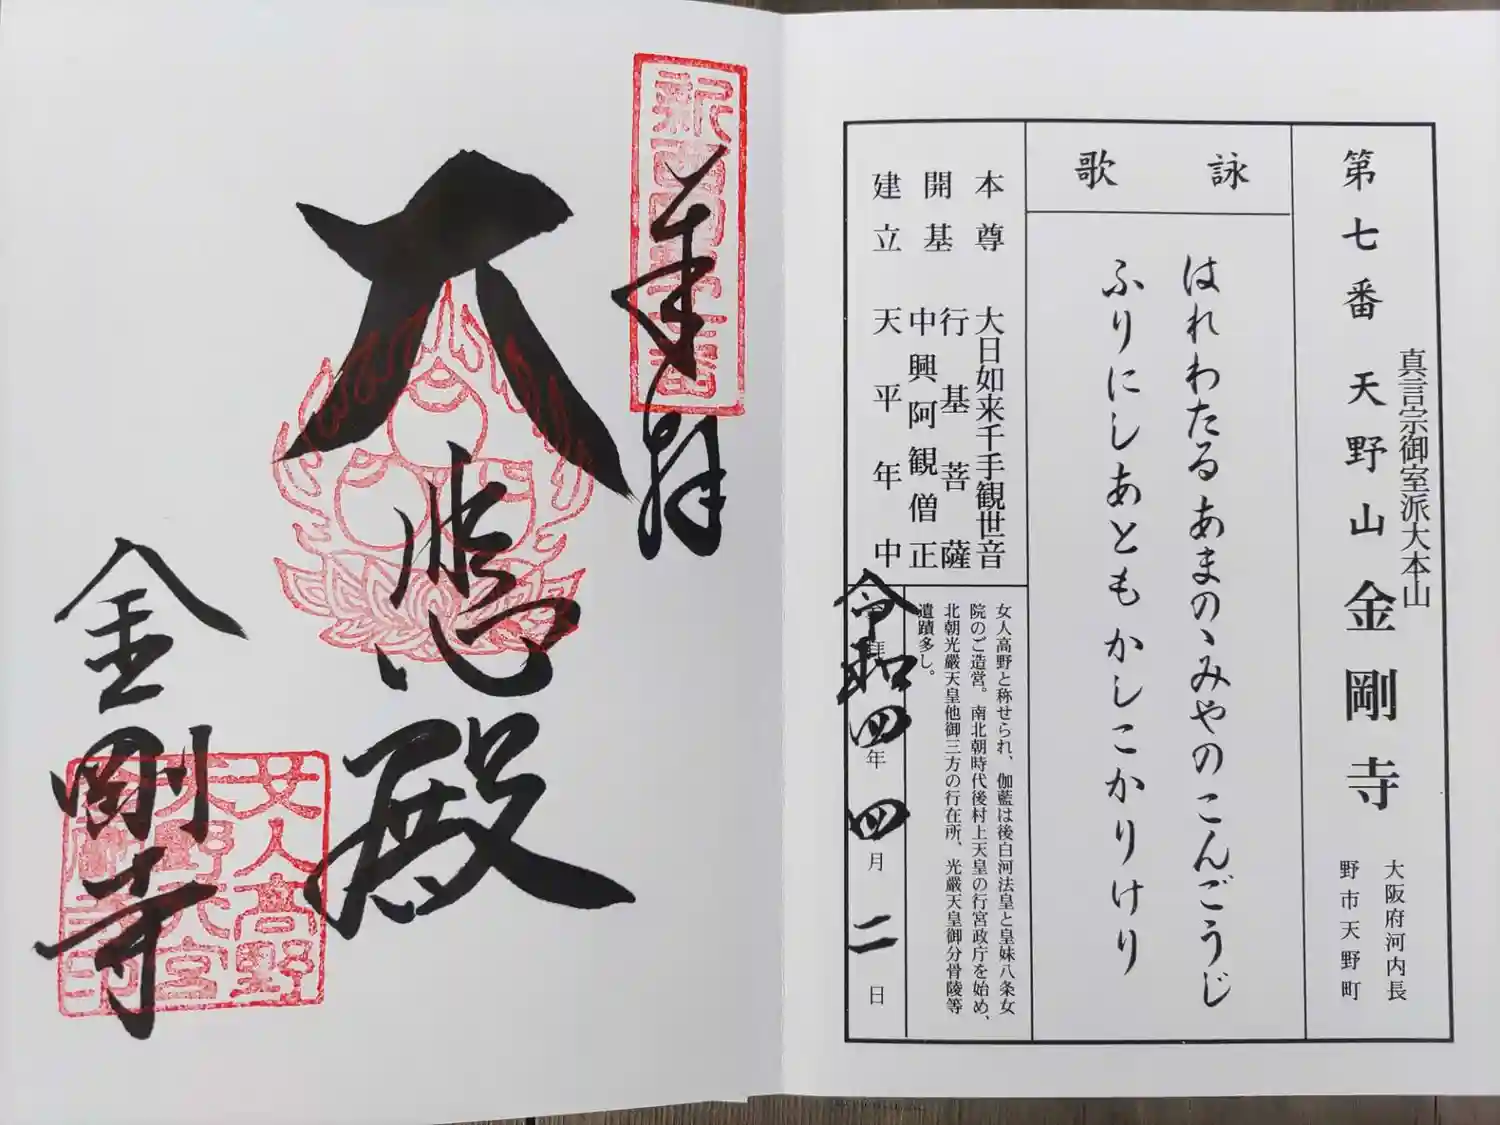 真言宗御室派大本山
第七番 天野山 金剛寺
大阪府河内長
野市天野町
詠歌
はれわたるあまのゝみやのこんごうじ
ふりにしあともかしこかりけり
本尊 大日如来千手観世音
開基 行基菩薩
中興阿観僧正
建立 天平年中
女人高野と称せられ、伽藍は後白河法皇と皇妹八条女
院のご造営。南北朝時代後村上天皇の行宮政庁を始め、
北朝光厳天皇他御三方の行在所、光厳天皇御分骨陵等
遺蹟多し。
令和四年四月二日
新西国第七番
奉拝
大悲殿
金剛寺
女人高野